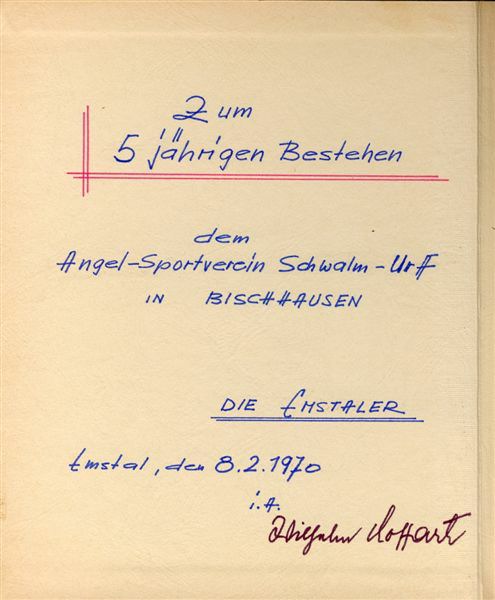 Zum
5 jährigen Bestehen
dem
Angel-Sportverein Schwalm-Urff
IN BISCHHAUSEN
DIE EMSTALER
Emstal, den 8.2.1970
i.A.
Wilhelm